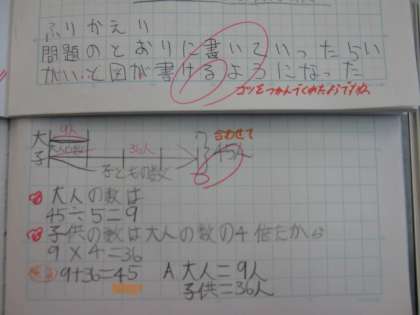 ふりかえり
問題のとおりに書いていったらい
がいと図が書けるようになった
コツをつかんでくれたようですね。
9人
大
大人の数
36人
合わせて
子
45人
子どもの数
大人の数は
45÷5=9
子供の数は大人の数の4倍だから
9×4=36
9+36=45 A 大人=9人
子供=36人